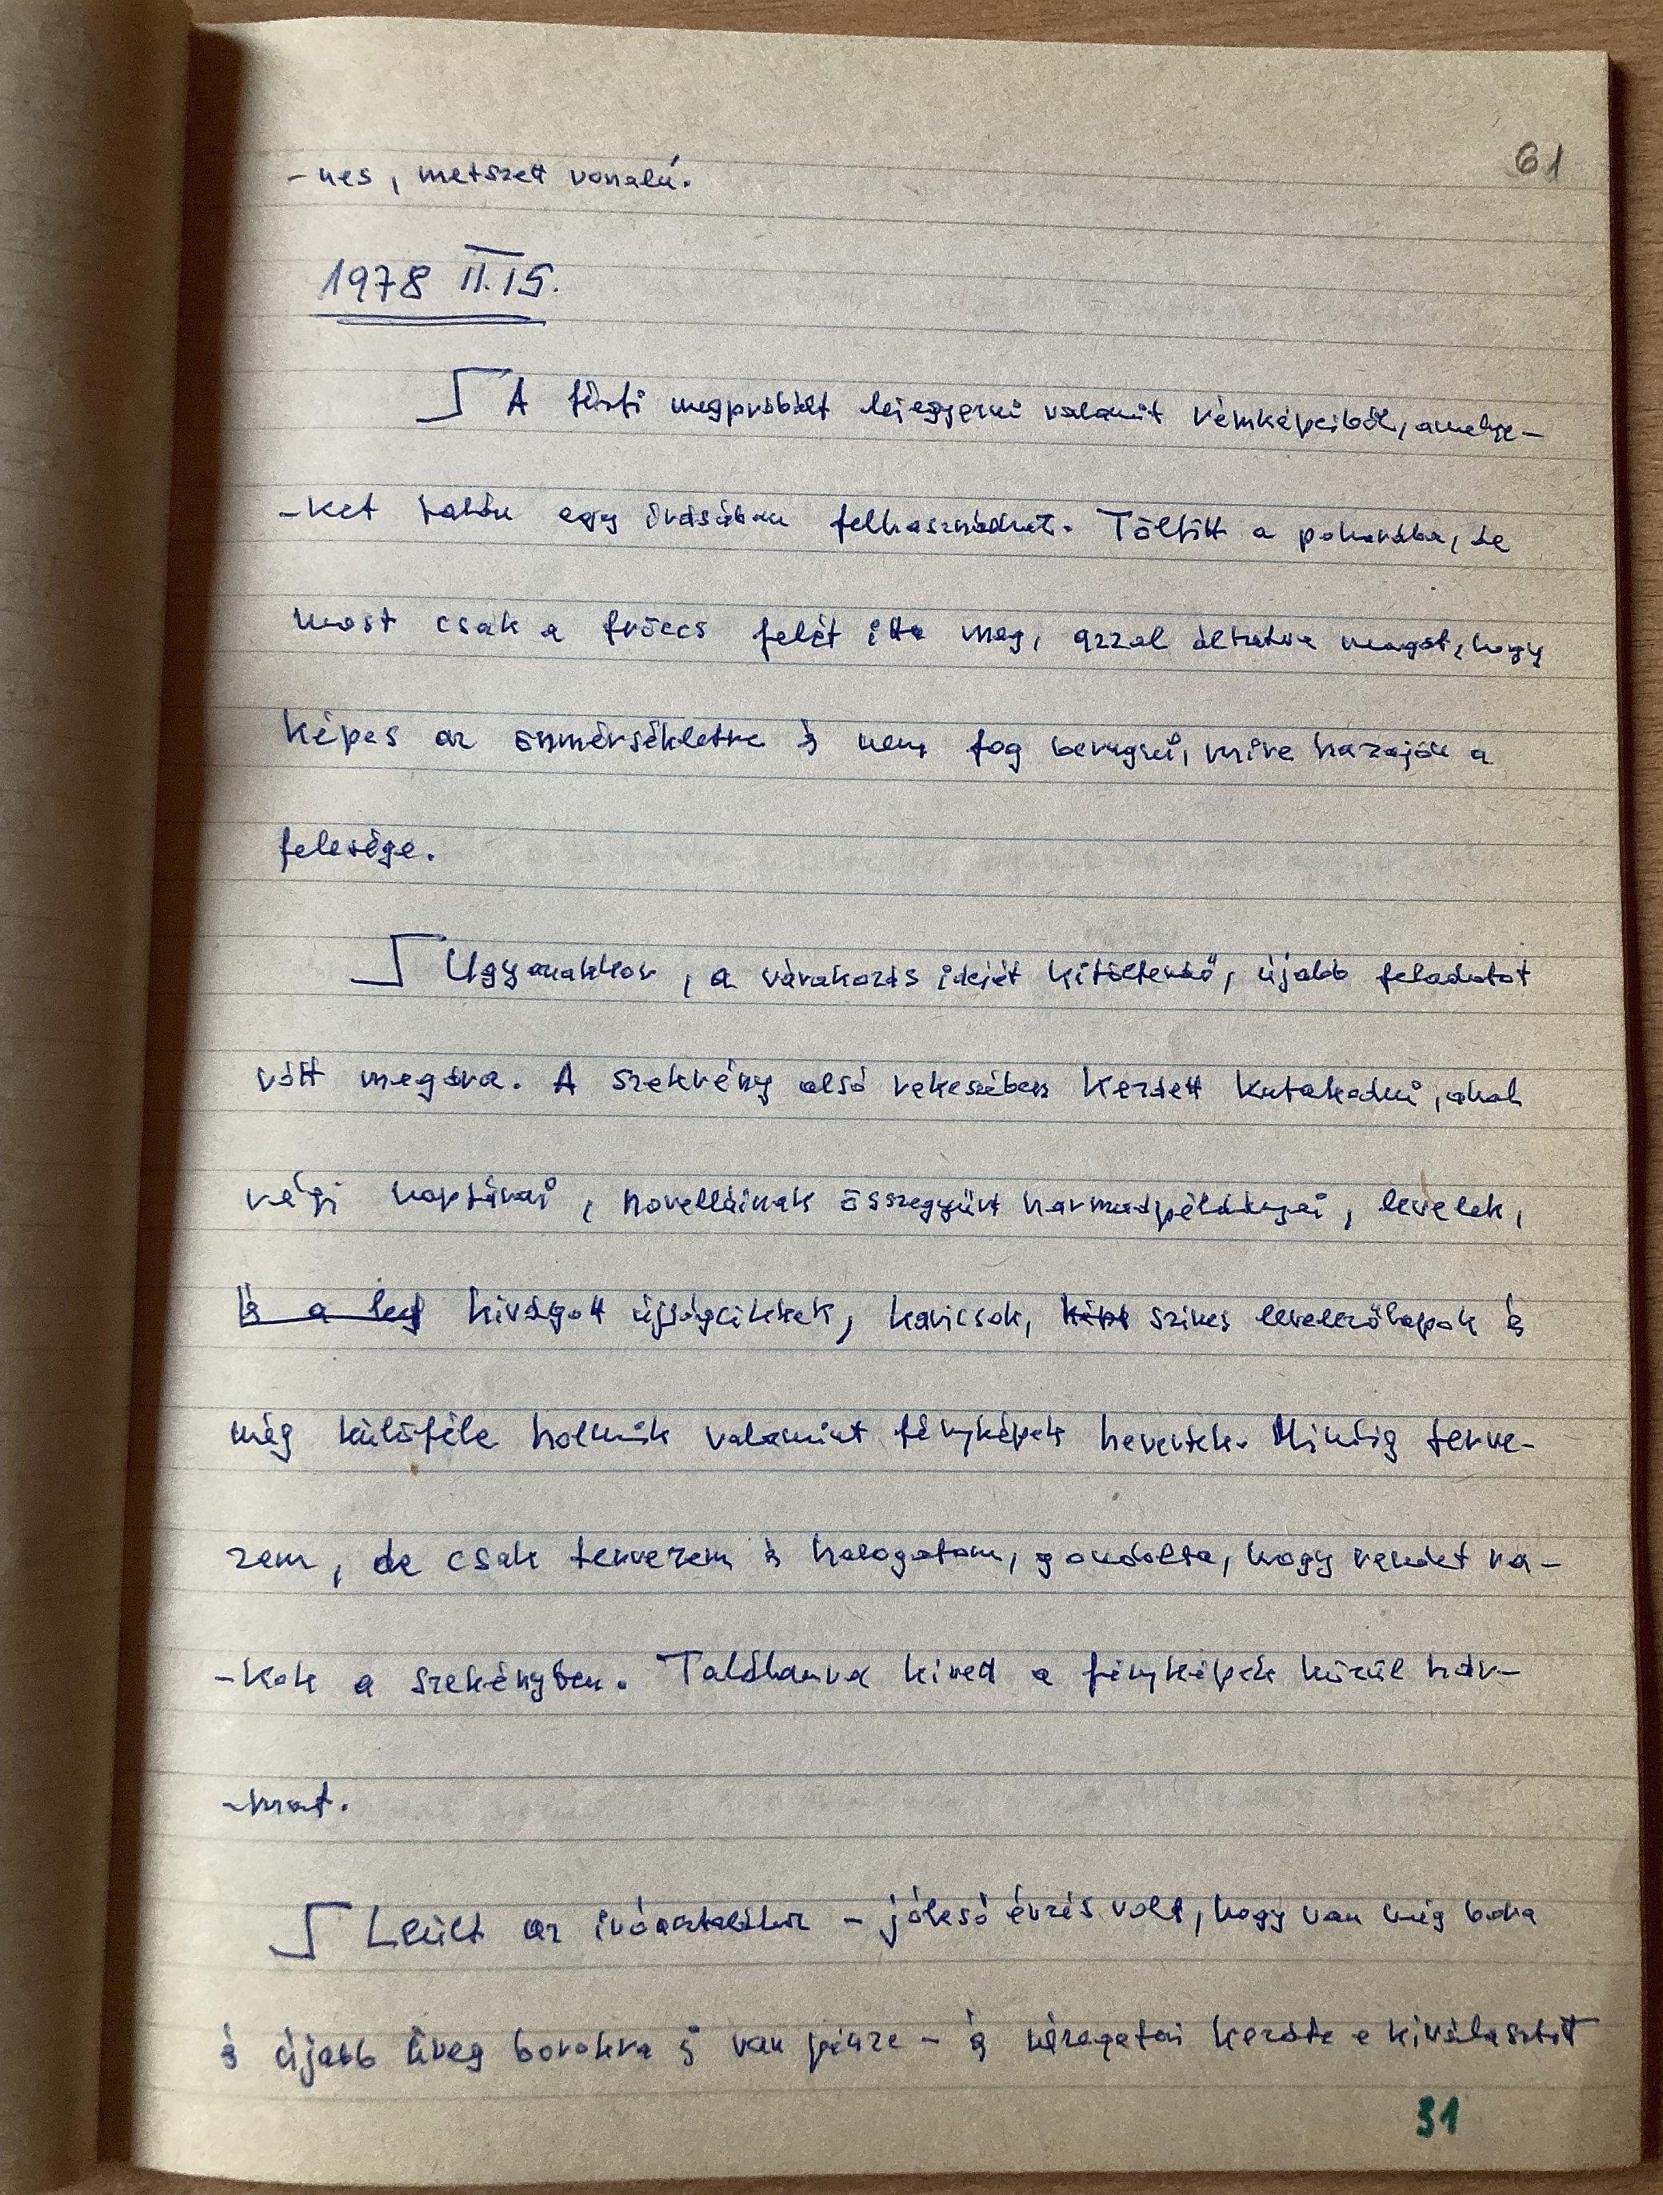 61
-nes, metszett vonalú.
1978 II.15.
A férfi megpróbált lejegyezni valamit rémképeiből, amelye-
-ket talán egy írásában felhasználhat. Töltött a pohárába, de
most csak a fröccs felét itta meg, azzal áltatva magát, hogy
képes az önmérsékletre és nem fog berúgni, mire hazajön a
felesége.
Ugyanakkor, a várakozás idejét kitöltendő, újabb feladatot
rótt magára. A szekrény alsó rekeszében kezdett kutakodni, ahol
régi naptárai, novelláinak összegyűrt harmadpéldányai, levelek,
és a leg kivágott újságcikkek, kavicsok, képe színes levelezőlapok és
még külöféle holmik valamint fényképek hevertek. Mindig terve-
zem, de csak tervezem és halogatom, gondolta, hogy rendet ra-
-kok a szekényben. Találomra kivett a fényképek közül hár-
-mat.
Leült az ivóasztalához - jóleső érzés volt, hogy van még bora
és újabb üveg borokra is van pénze - és nézegetni kezdte a kiválasztott
31